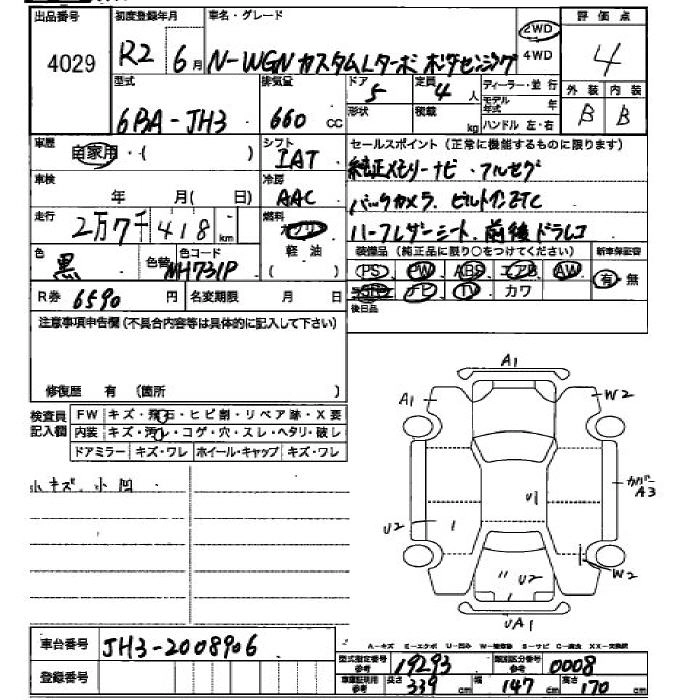 出品番号 初度登録年月 車名・グレード 評価点
4029 R2 6月 N-WGN カスタムLターボ ホンダセンシング 2WD 4WD 4
型式 排気量 ドア 定員 ディーラー・並行 外装 内装
6BA-JH3 660 cc 5 4人 モデル年式 年 B B
形状 積載 kg ハンドル 左・右
車歴 自家用・( ) シフト IAT セールスポイント(正常に機能するものに限ります)
純正メモリーナビ・フルセグ
車検 年 月( 日) 冷房 AAC バックカメラ. ビルトインETC
走行 2万7千418km 燃料 ガソリン 軽油 ハーフレザーシート. 前後ドラレコ
色 黒 色替 色コード NH731P 装備品(純正品に限り○をつけてください) 新車保証書
PS PW ABS エアB AW 有 無
R券 6590円 名変期限 月 日 ナビ TV カワ
後日品
注意事項申告欄(不具合内容等は具体的に記入して下さい)
修復歴 有 (箇所 )
検査員記入欄 FW キズ・飛石・ヒビ割・リペア跡・X要
内装 キズ・汚れ・コゲ・穴・スレ・ヘタリ・破レ
ドアミラー キズ・ワレ ホイール・キャップ キズ・ワレ
小キズ 小凹
A1
A1 W2
U1 カバーA3
U2
U2 W2
UA1
車台番号 JH3-2008906
A-キズ E-エクボ U-凹み W-補修跡 S-サビ C-腐食 XX-交換済
型式指定番号 参考 19293 類別区分番号 参考 0008
登録番号 車庫証明用 参考 長さ 339cm 幅 147cm 高さ 170cm